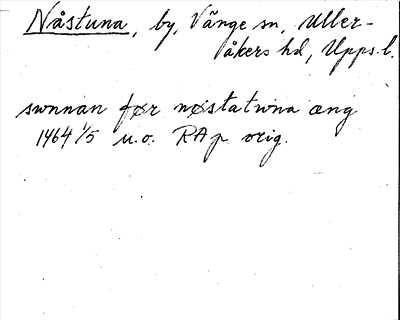 Nåstuna, by, Vänge sn, Uller-
åkers hd, Upps.l.
swnnan før nøstatwna æng
1464 1/5 u.o. RAp orig.